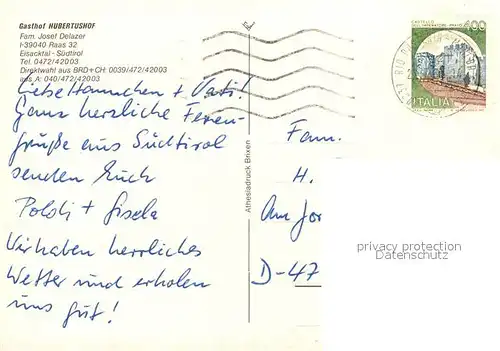 Gasthof HUBERTUSHOF
Fam. Josef Delazer
I-39040 Raas 32
Eisacktal - Südtirol
Tel. 0472/42003
Direktwahl aus BRD+CH: 0039/472/42003
aus A: 040/472/42003
Liebe Hannchen + Vati!
Ganz herzliche Ferien-
grüße aus Südtirol
senden Euch
Poldi + Gisela
Wir haben herrliches
Wetter und erholen
uns gut!
Athesiadruck Brixen
CASTELLO
DELL'IMPERATORE - PRATO
400
ITALIA
Fam.
H.
Am Jor
D-47
privacy protection
Datenschutz